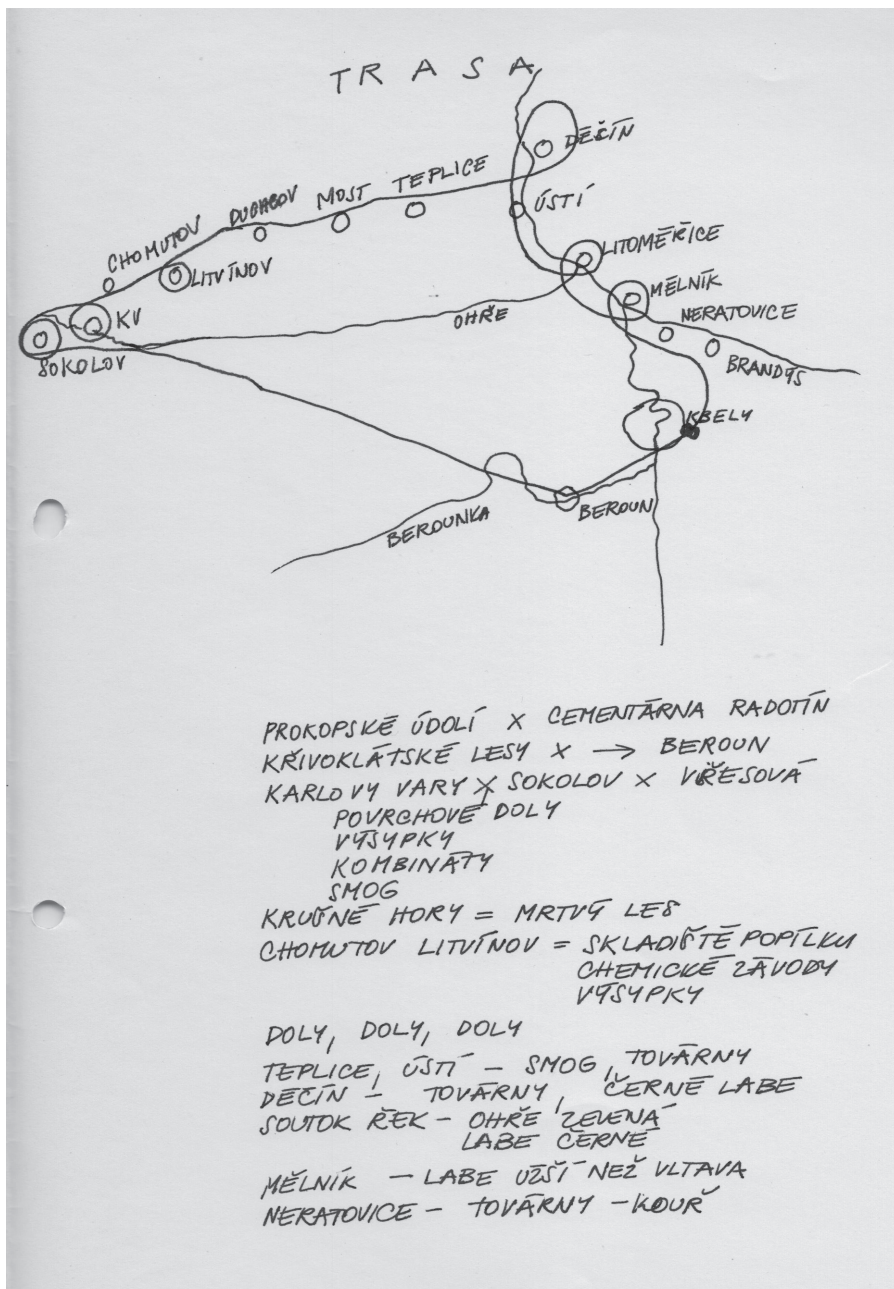 TRASA
DĚČÍN
TEPLICE
MOST
DUCHCOV
ÚSTÍ
CHOMUTOV
LITVÍNOV
LITOMĚŘICE
MĚLNÍK
NERATOVICE
KV
OHŘE
SOKOLOV
BRANDÝS
KBELY
BEROUNKA
BEROUN
PROKOPSKÉ ÚDOLÍ X CEMENTÁRNA RADOTÍN
KŘIVOKLÁTSKÉ LESY X → BEROUN
KARLOVY VARY X SOKOLOV X VŘESOVÁ
POVRCHOVÉ DOLY
VÝSYPKY
KOMBINÁTY
SMOG
KRUŠNÉ HORY = MRTVÝ LES
CHOMUTOV LITVÍNOV = SKLADIŠTĚ POPÍLKU
CHEMICKÉ ZÁVODY
VÝSYPKY
DOLY, DOLY, DOLY
TEPLICE, ÚSTÍ – SMOG, TOVÁRNY
DĚČÍN – TOVÁRNY, ČERNÉ LABE
SOUTOK ŘEK – OHŘE ZELENÁ
LABE ČERNÉ
MĚLNÍK – LABE UŽŠÍ NEŽ VLTAVA
NERATOVICE – TOVÁRNY – KOUŘ